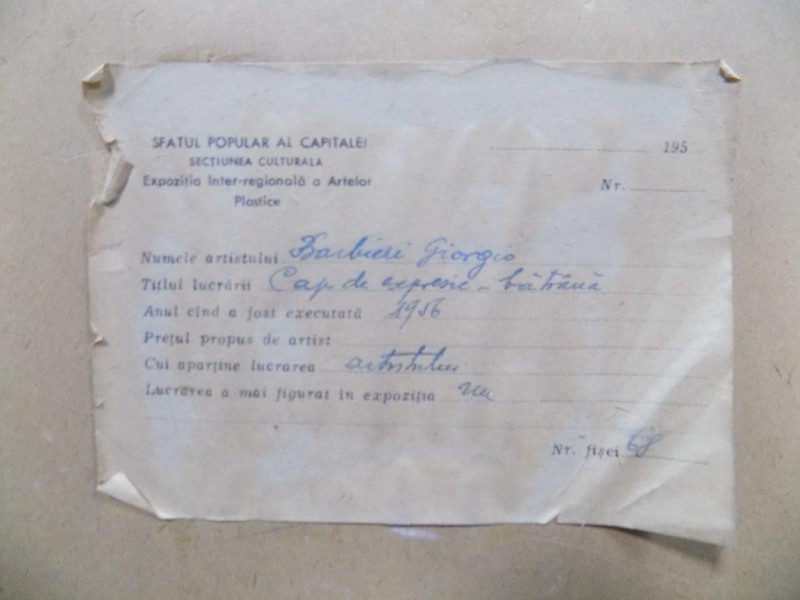 SFATUL POPULAR AL CAPITALEI
SECȚIUNEA CULTURALA
Expoziția Inter-regională a Artelor
Plastice
195
Nr.
Numele artistului Barbieri Giorgio
Titlul lucrării Cap de expresie - bătrână
Anul cînd a fost executată 1956
Prețul propus de artist
Cui aparține lucrarea artistului
Lucrarea a mai figurat în expoziția nu
Nr. fișei 68